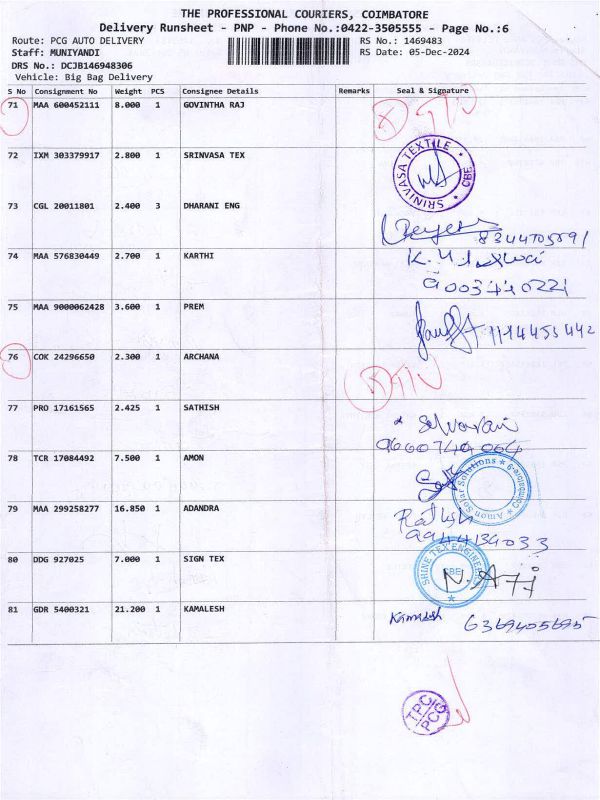 THE PROFESSIONAL COURIERS, COIMBATORE
Delivery Runsheet - PNP - Phone No.:0422-3505555 - Page No.:6
Route: PCG AUTO DELIVERY RS No.: 1469483
Staff: MUNIYANDI RS Date: 05-Dec-2024
DRS No.: DCJB146948306
Vehicle: Big Bag Delivery
S No Consignment No Weight PCS Consignee Details Remarks Seal & Signature
71 MAA 600452111 8.000 1 GOVINTHA RAJ
72 IXM 303379917 2.800 1 SRINVASA TEX
SRINIVASA TEXTILE CBE
73 CGL 20011801 2.400 3 DHARANI ENG
74 MAA 576830449 2.700 1 KARTHI
75 MAA 9000062428 3.600 1 PREM
76 COK 24296650 2.300 1 ARCHANA
77 PRO 17161565 2.425 1 SATHISH
Selvarani
78 TCR 17084492 7.500 1 AMON
Amon Solar Solutions
79 MAA 299258277 16.850 1 ADANDRA
9944134033
80 DDG 927025 7.000 1 SIGN TEX
SHINE TEX ENGINEERS CBE
81 GDR 5400321 21.200 1 KAMALESH
Kamalesh 6369405695
TPC
PCG